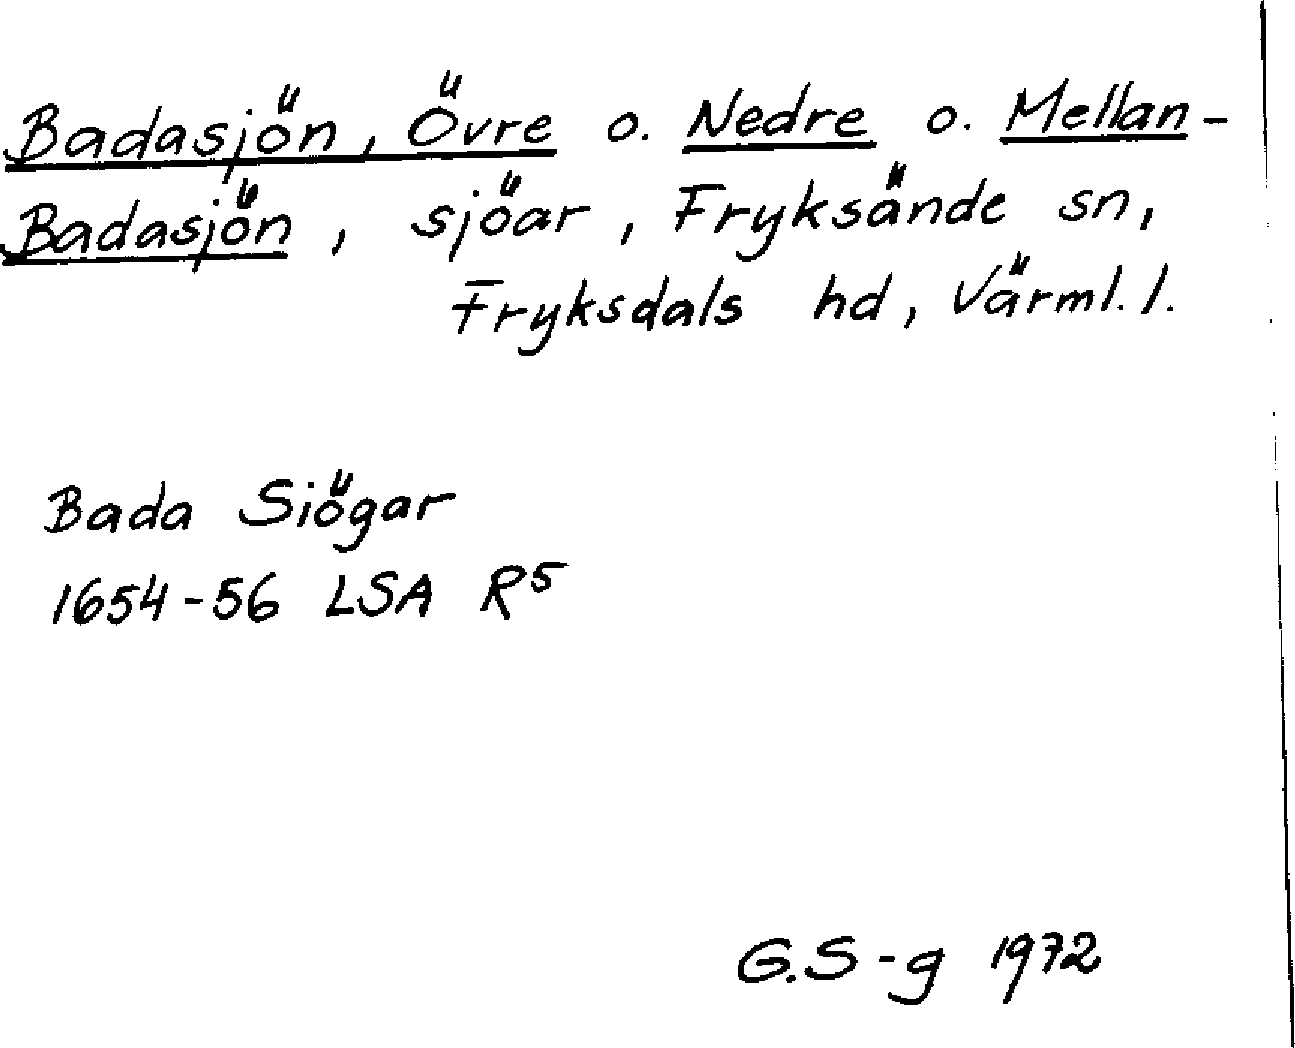 Badasjön, Övre o. Nedre o. Mellan-
Badasjön, sjöar, Fryksände sn,
Fryksdals hd, Värml. l.
Bada Siögar
1654-56 LSA R5
G.S-g 1972